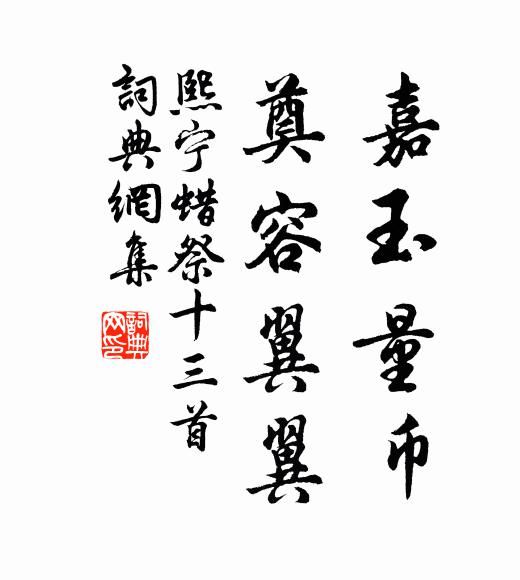 嘉玉量币
奠容翼翼
熙宁蜡祭十三首
詞典網集
詞典网印